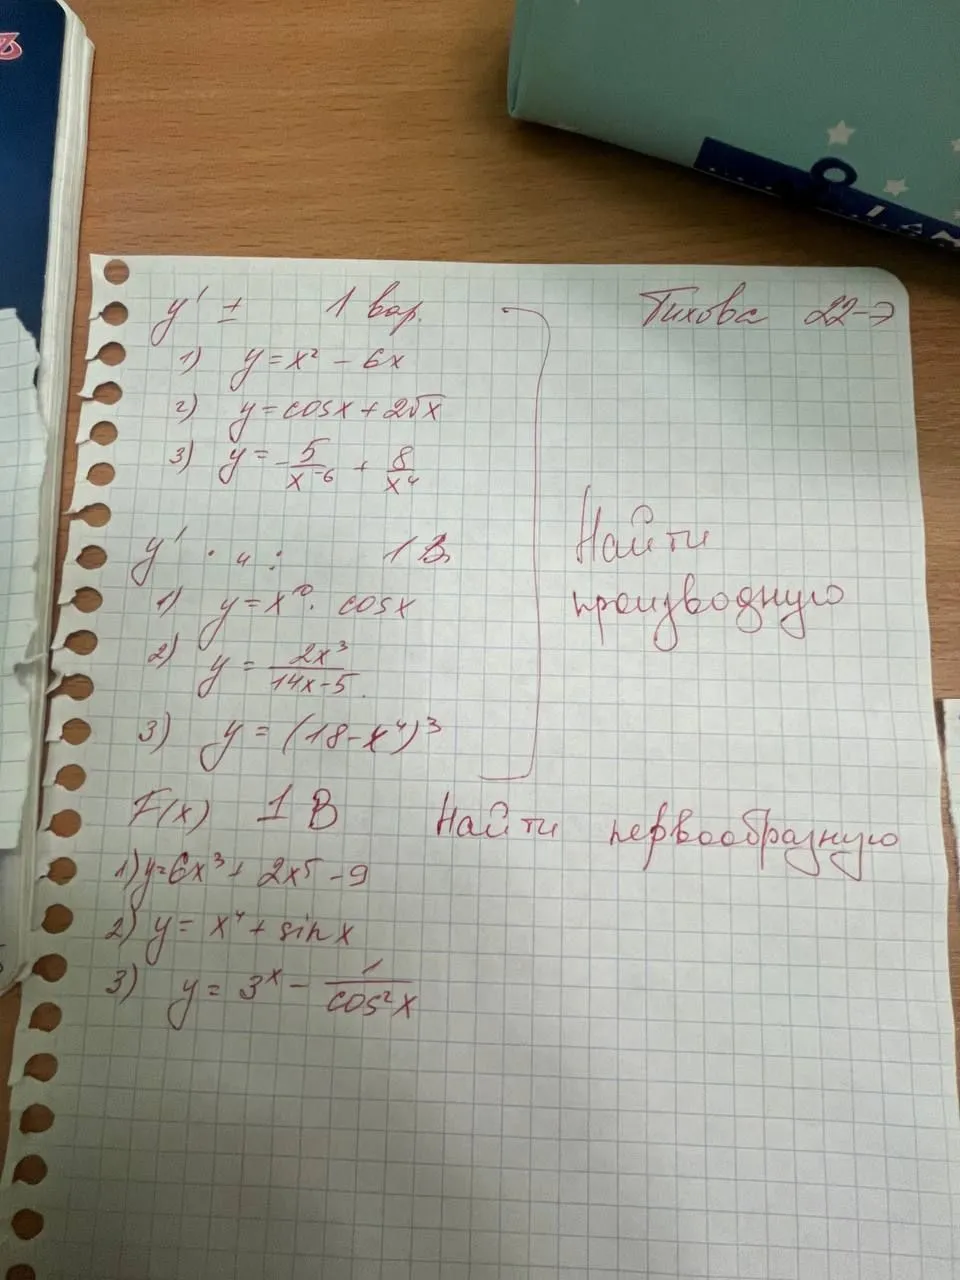 y' ± 1 вар. Тихова 22-Э
1) y = x² - 6x
2) y = cosx + 2√x
3) y = -5/x⁻⁶ + 8/x⁴
Найти
y' · и : 1 В
производную
1) y = x · cosx
2) y = 2x³/14x-5.
3) y = (18-x⁴)³
F(x) 1 В Найти первообразную
1) y=6x³ + 2x⁵ - 9
2) y = x⁴ + sinx
3) y = 3ˣ - 1/cos²x